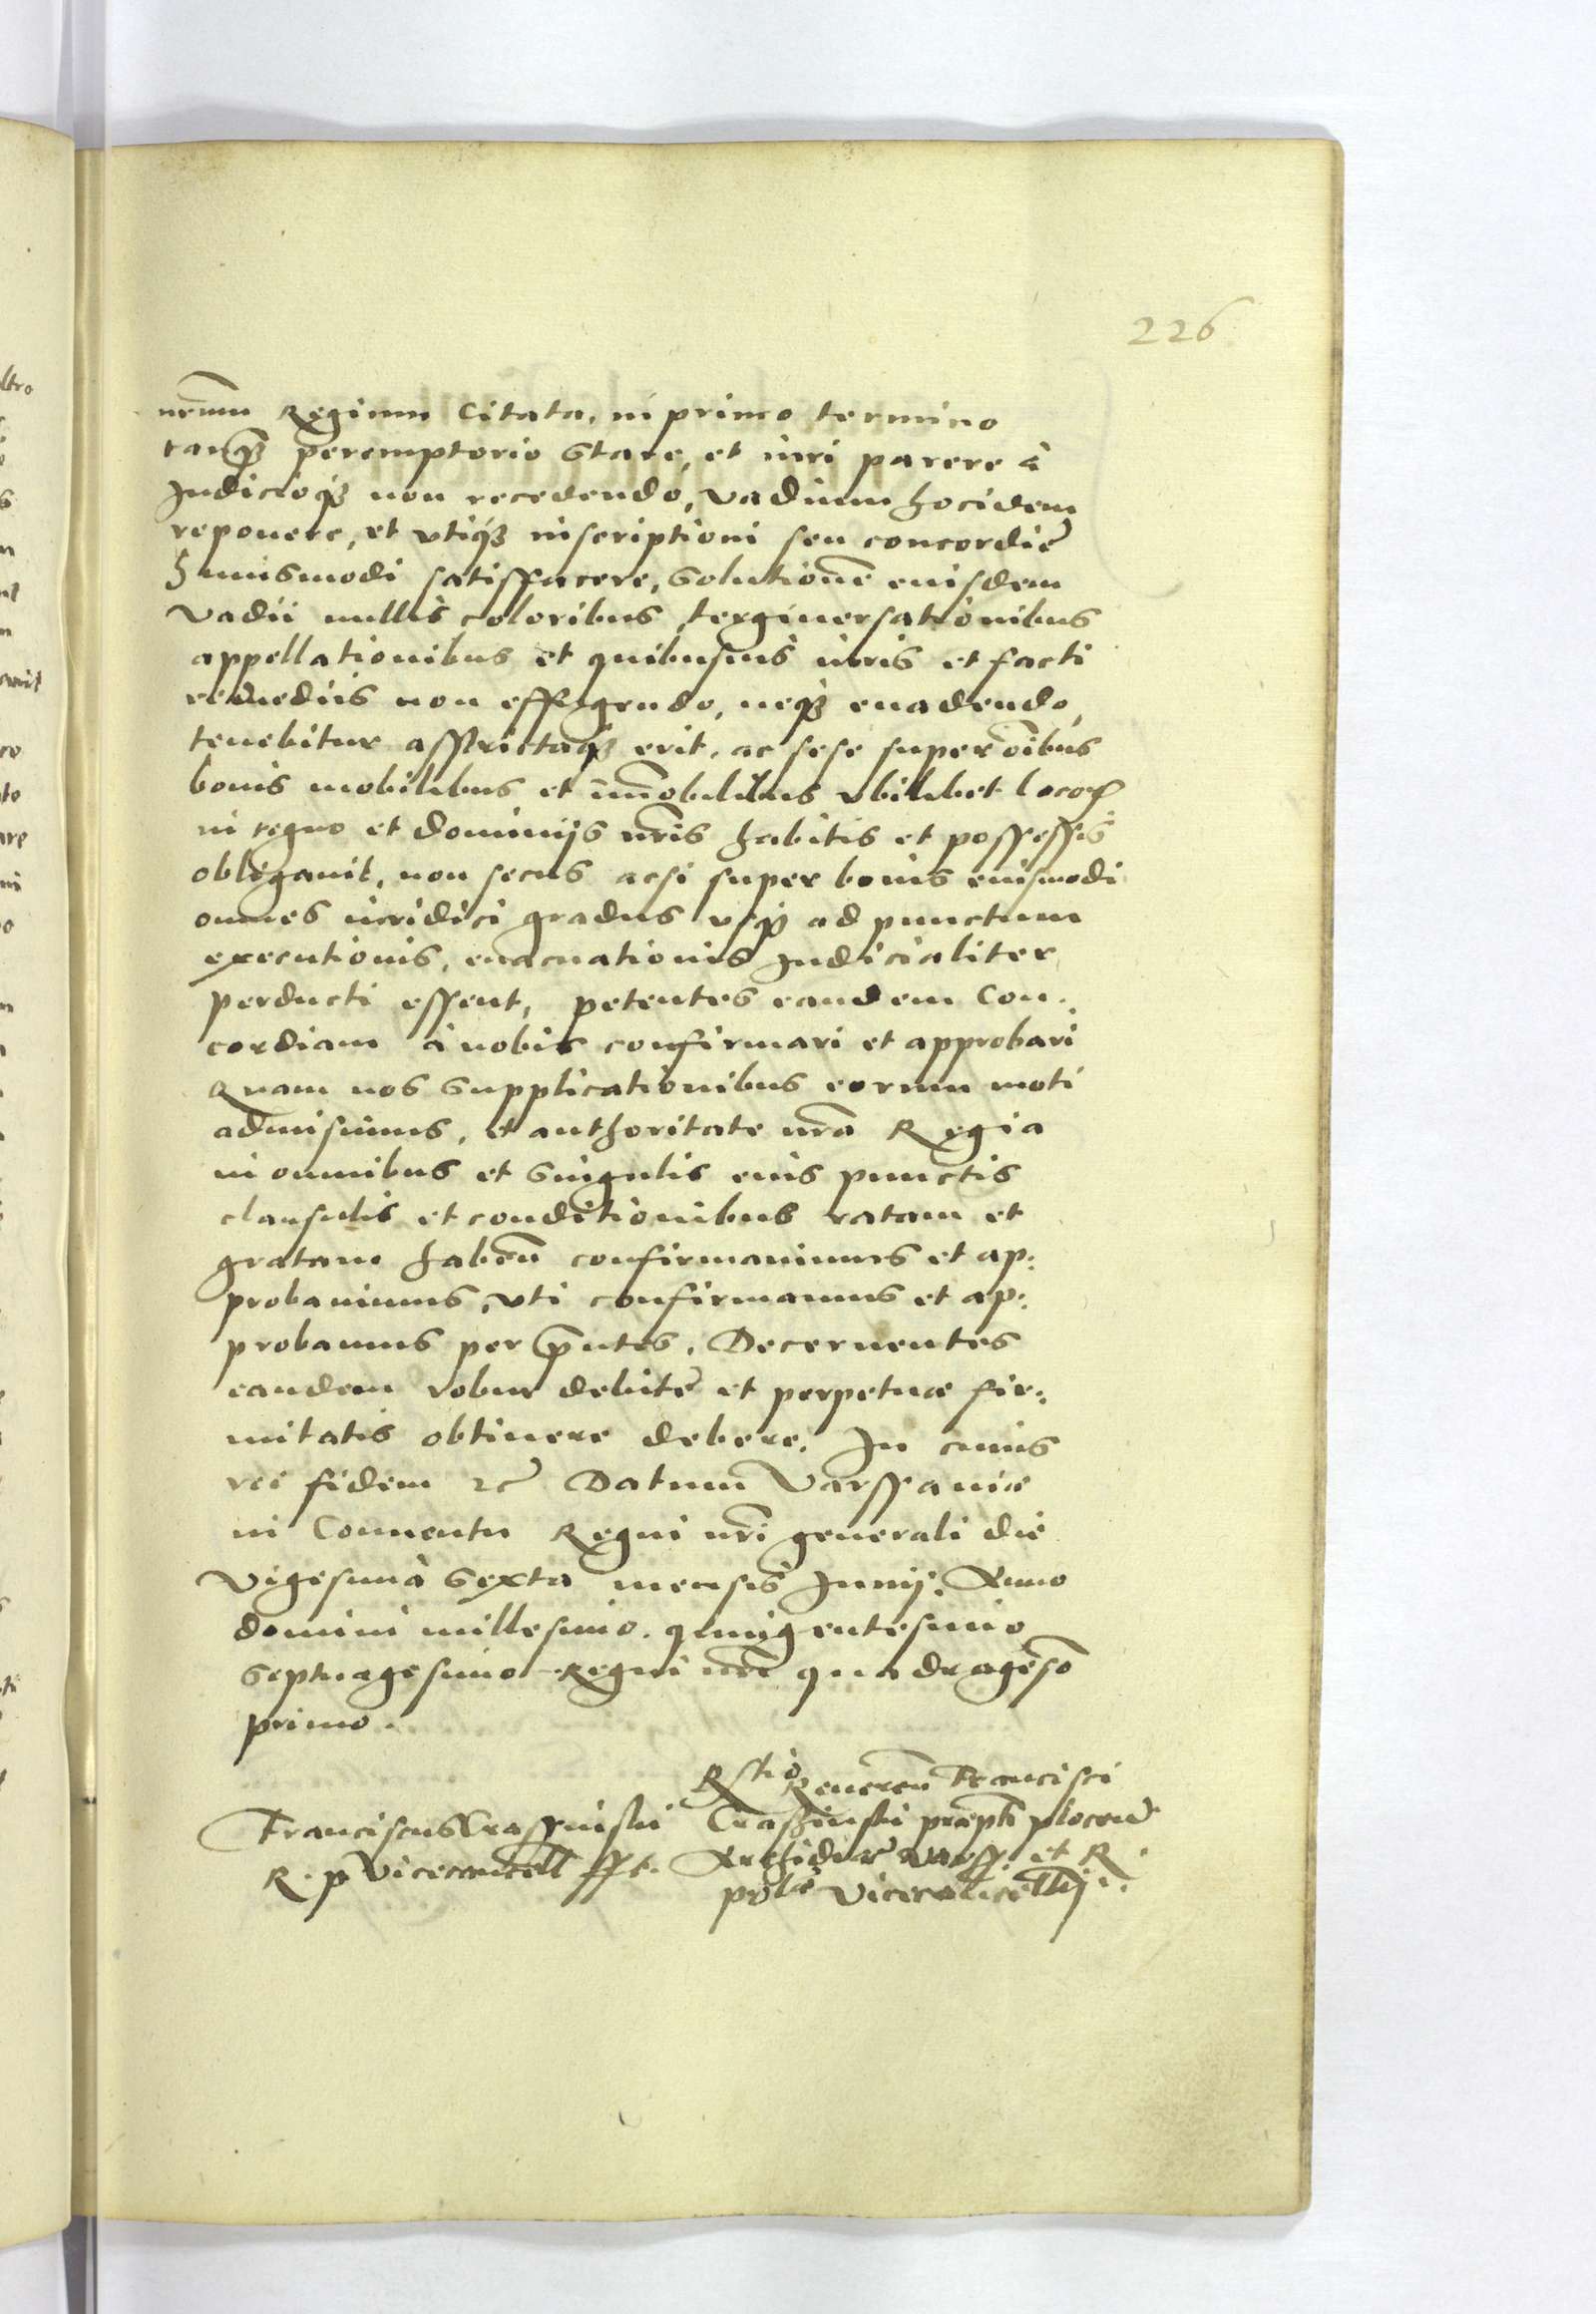 226
nr̃um Regium Citata, in primo termino
tanq̃ꝫ peremptorio stare, et iuri parere à
Judicioqꝫ non recedendo, vadium hocidem
reponere, et vtiqꝫ inscriptioni seu concordię
huiusmodi satisfacere, Solutionẽ eiusdem
vadii nullis coloribus, tergiuersationibus
appellationibus et quibusuis iuris et facti
remediis non effugendo, neqꝫ euadendo,
tenebitur asstrictaqꝫ erit, ac sese super oĩbus
bonis mobilibus et im̃obilibus vbilibet locoꝝ
in regno et dominijs nr̃is habitis et possessis
obligauit, non secus acsi super bonis eiusmodi
omnes iuridici gradus vsqꝫ ad punctum
executionis, euacuationis Judicialiter
perducti essent, petentes eandem Con:
cordiam à nobis confirmari et approbari
Quam nos supplicationibus eorum moti
admisimus, et authoritate nr̃a Regia
in omnibus et singulis eius punctis
clausulis et conditionibus ratam et
gratam habeñ confirmauimus et ap:
probauimus, vti confirmamus et ap:
probamus per p̃ntes. Decernentes
eandem robur debitę et perpetuæ fir:
mitatis obtinere debere. In cuius
rei fidem ꝛc̃ Datum Varssauiæ
in Conuentu Regni nr̃i generali die
vigesima sexta mensis Junij. Anno
domini millesimo. quingentesimo
septuagesimo Regni nr̃i quadragesõ
primo.
R̃stio Reuereñ Francisci
Franciscus Crassinski Crasinski præpti ploceñ
R. p. Vicecancell sst. Archidiac̃ varss. et R.
pol̃æ vicecancellij.